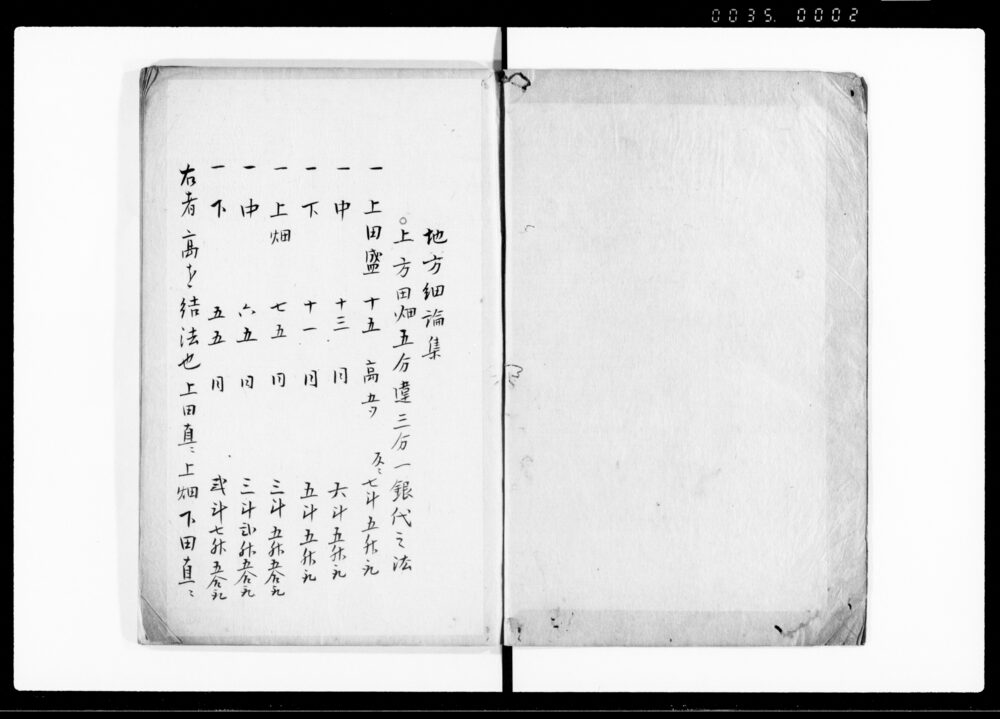 0035. 0002
地方細論集
○上方田畑五分違三分一銀代之法
一 上田盛 十五 高五ツ 反ニ七斗五升取
一 中 十三 同 六斗五升取
一 下 十一 同 五斗五升取
一 上畑 七五 同 三斗五升五合取
一 中 六五 同 三斗弐升五合取
一 下 五五 同 弐斗七升五合取
右者高を結法也上田直ニ上畑下田直ニ